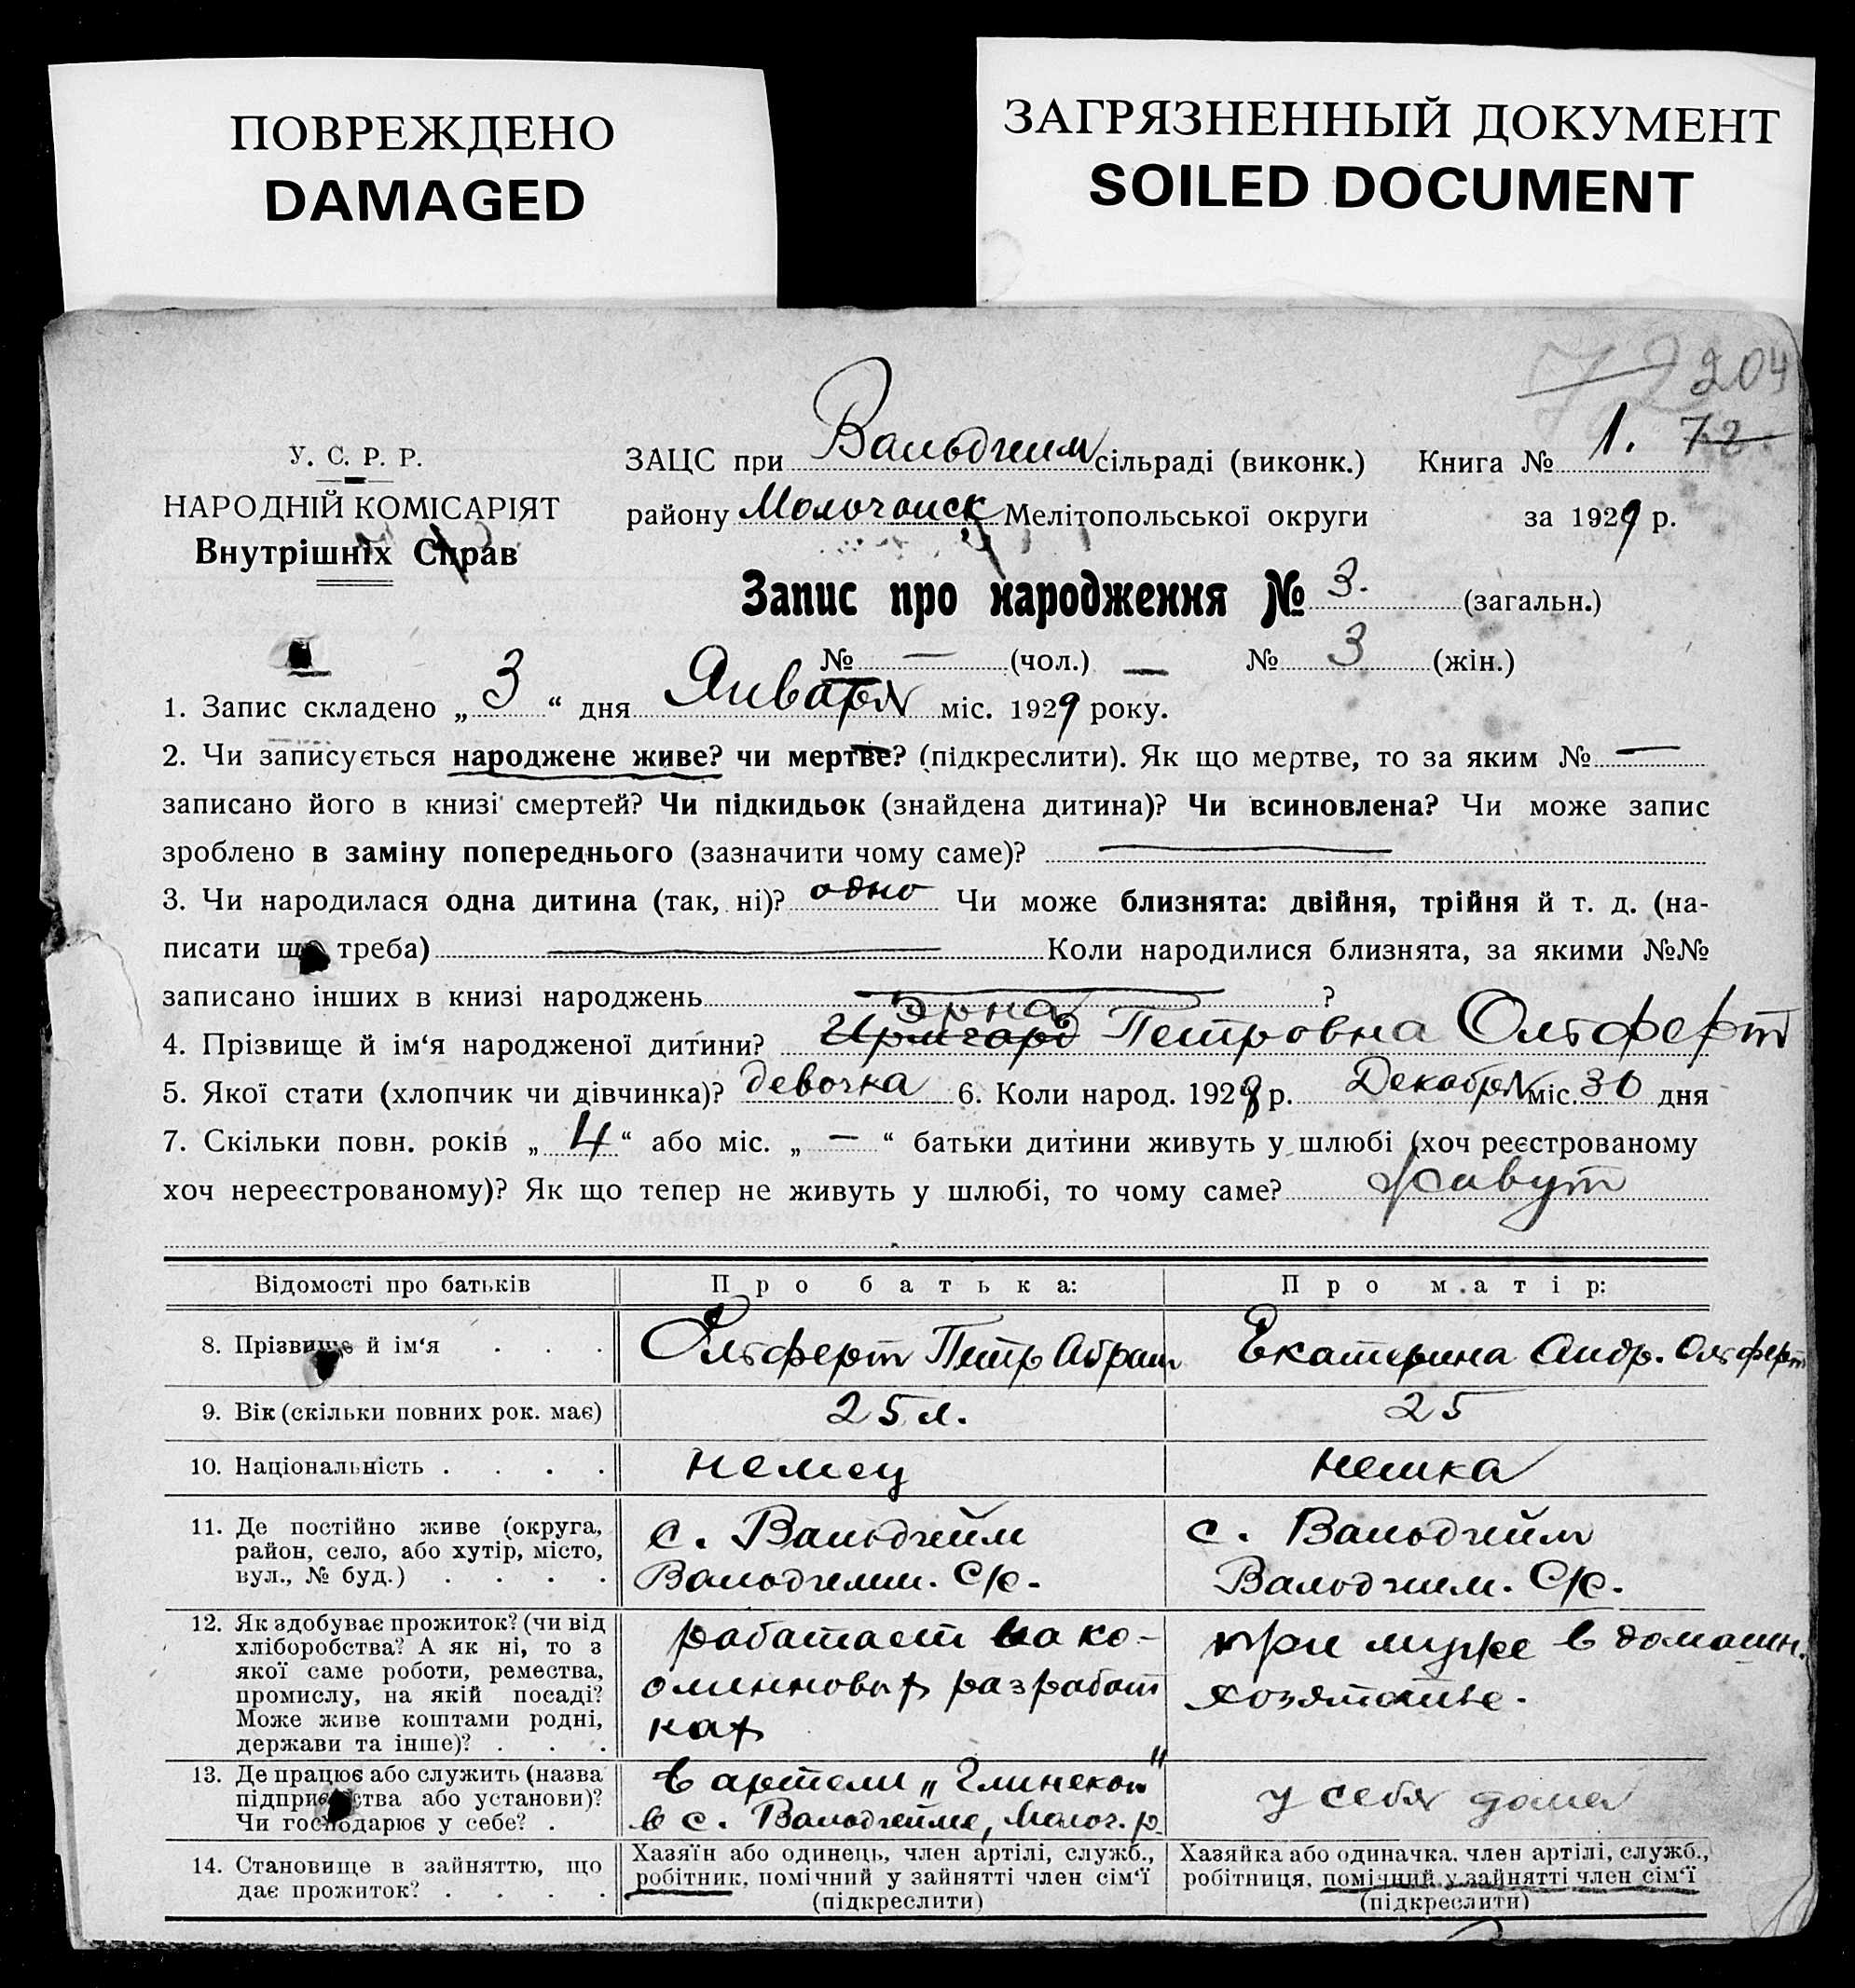 ПОВРЕЖДЕНО
DAMAGED
ЗАГРЯЗНЕННЫЙ ДОКУМЕНТ
SOILED DOCUMENT
204
72
У. С. Р. Р.
НАРОДНІЙ КОМІСАРІЯТ
Внутрішніх Справ
ЗАЦС при Вальдгейм сільраді (виконк.) Книга № 1.
району Молочанск Мелітопольської округи за 1929 р.
Запис про народження № 3. (загальн.)
№ — (чол.) — № 3 (жін.)
1. Запис складено „ 3 “ дня Января міс. 1929 року.
2. Чи записується народжене живе? чи мертве? (підкреслити). Як що мертве, то за яким № —
записано його в книзі смертей? Чи підкидьок (знайдена дитина)? Чи всиновлена? Чи може запис
зроблено в заміну попереднього (зазначити чому саме)? —
3. Чи народилася одна дитина (так, ні)? одно Чи може близнята: двійня, трійня й т. д. (на-
писати що треба) — Коли народилися близнята, за якими №№
записано інших в книзі народжень — ?
Эрна
4. Прізвище й ім‘я народженої дитини? Ирмгард Петровна Ольферт
5. Якої стати (хлопчик чи дівчинка)? девочка 6. Коли народ. 1928 р. Декабря міс. 30 дня
7. Скільки повн. років „ 4 “ або міс. „ — “ батьки дитини живуть у шлюбі (хоч реєстрованому
хоч нереєстрованому)? Як що тепер не живуть у шлюбі, то чому саме? живут
Відомості про батьків Про батька: Про матір:
8. Прізвище й ім‘я . . . Ольферт Петр Абрам Екатерина Андр. Ольферт
9. Вік (скільки повних рок. має) 25 л. 25
10. Національність . . . . немец немка
11. Де постійно живе (округа, район, село, або хутір, місто, вул., № буд.) . . . .
с. Вальдгейм
Вальдгейм. С/с.
с. Вальдгейм
Вальдгейм. С/с.
12. Як здобуває прожиток? (чи від хліборобства? А як ні, то з якої саме роботи, ремества, промислу, на якій посаді? Може живе коштами родні, держави та інше)? . . .
работает на ко-
олинновых разработ
ках
при муже в домашн.
хозяйстве.
13. Де працює або служить (назва підприємства або установи)? Чи господарює у себе? .
в артели „
в с. Вальдгейме, Молоч. р.
у себя дома
14. Становище в зайняттю, що дає прожиток? . . . .
Хазяїн або одинець, член артілі, служб., робітник, помічний у зайнятті член сім‘ї (підкреслити)
Хазяйка або одиначка, член артілі, служб., робітниця, помічний у зайнятті член сім‘ї (підкреслити)